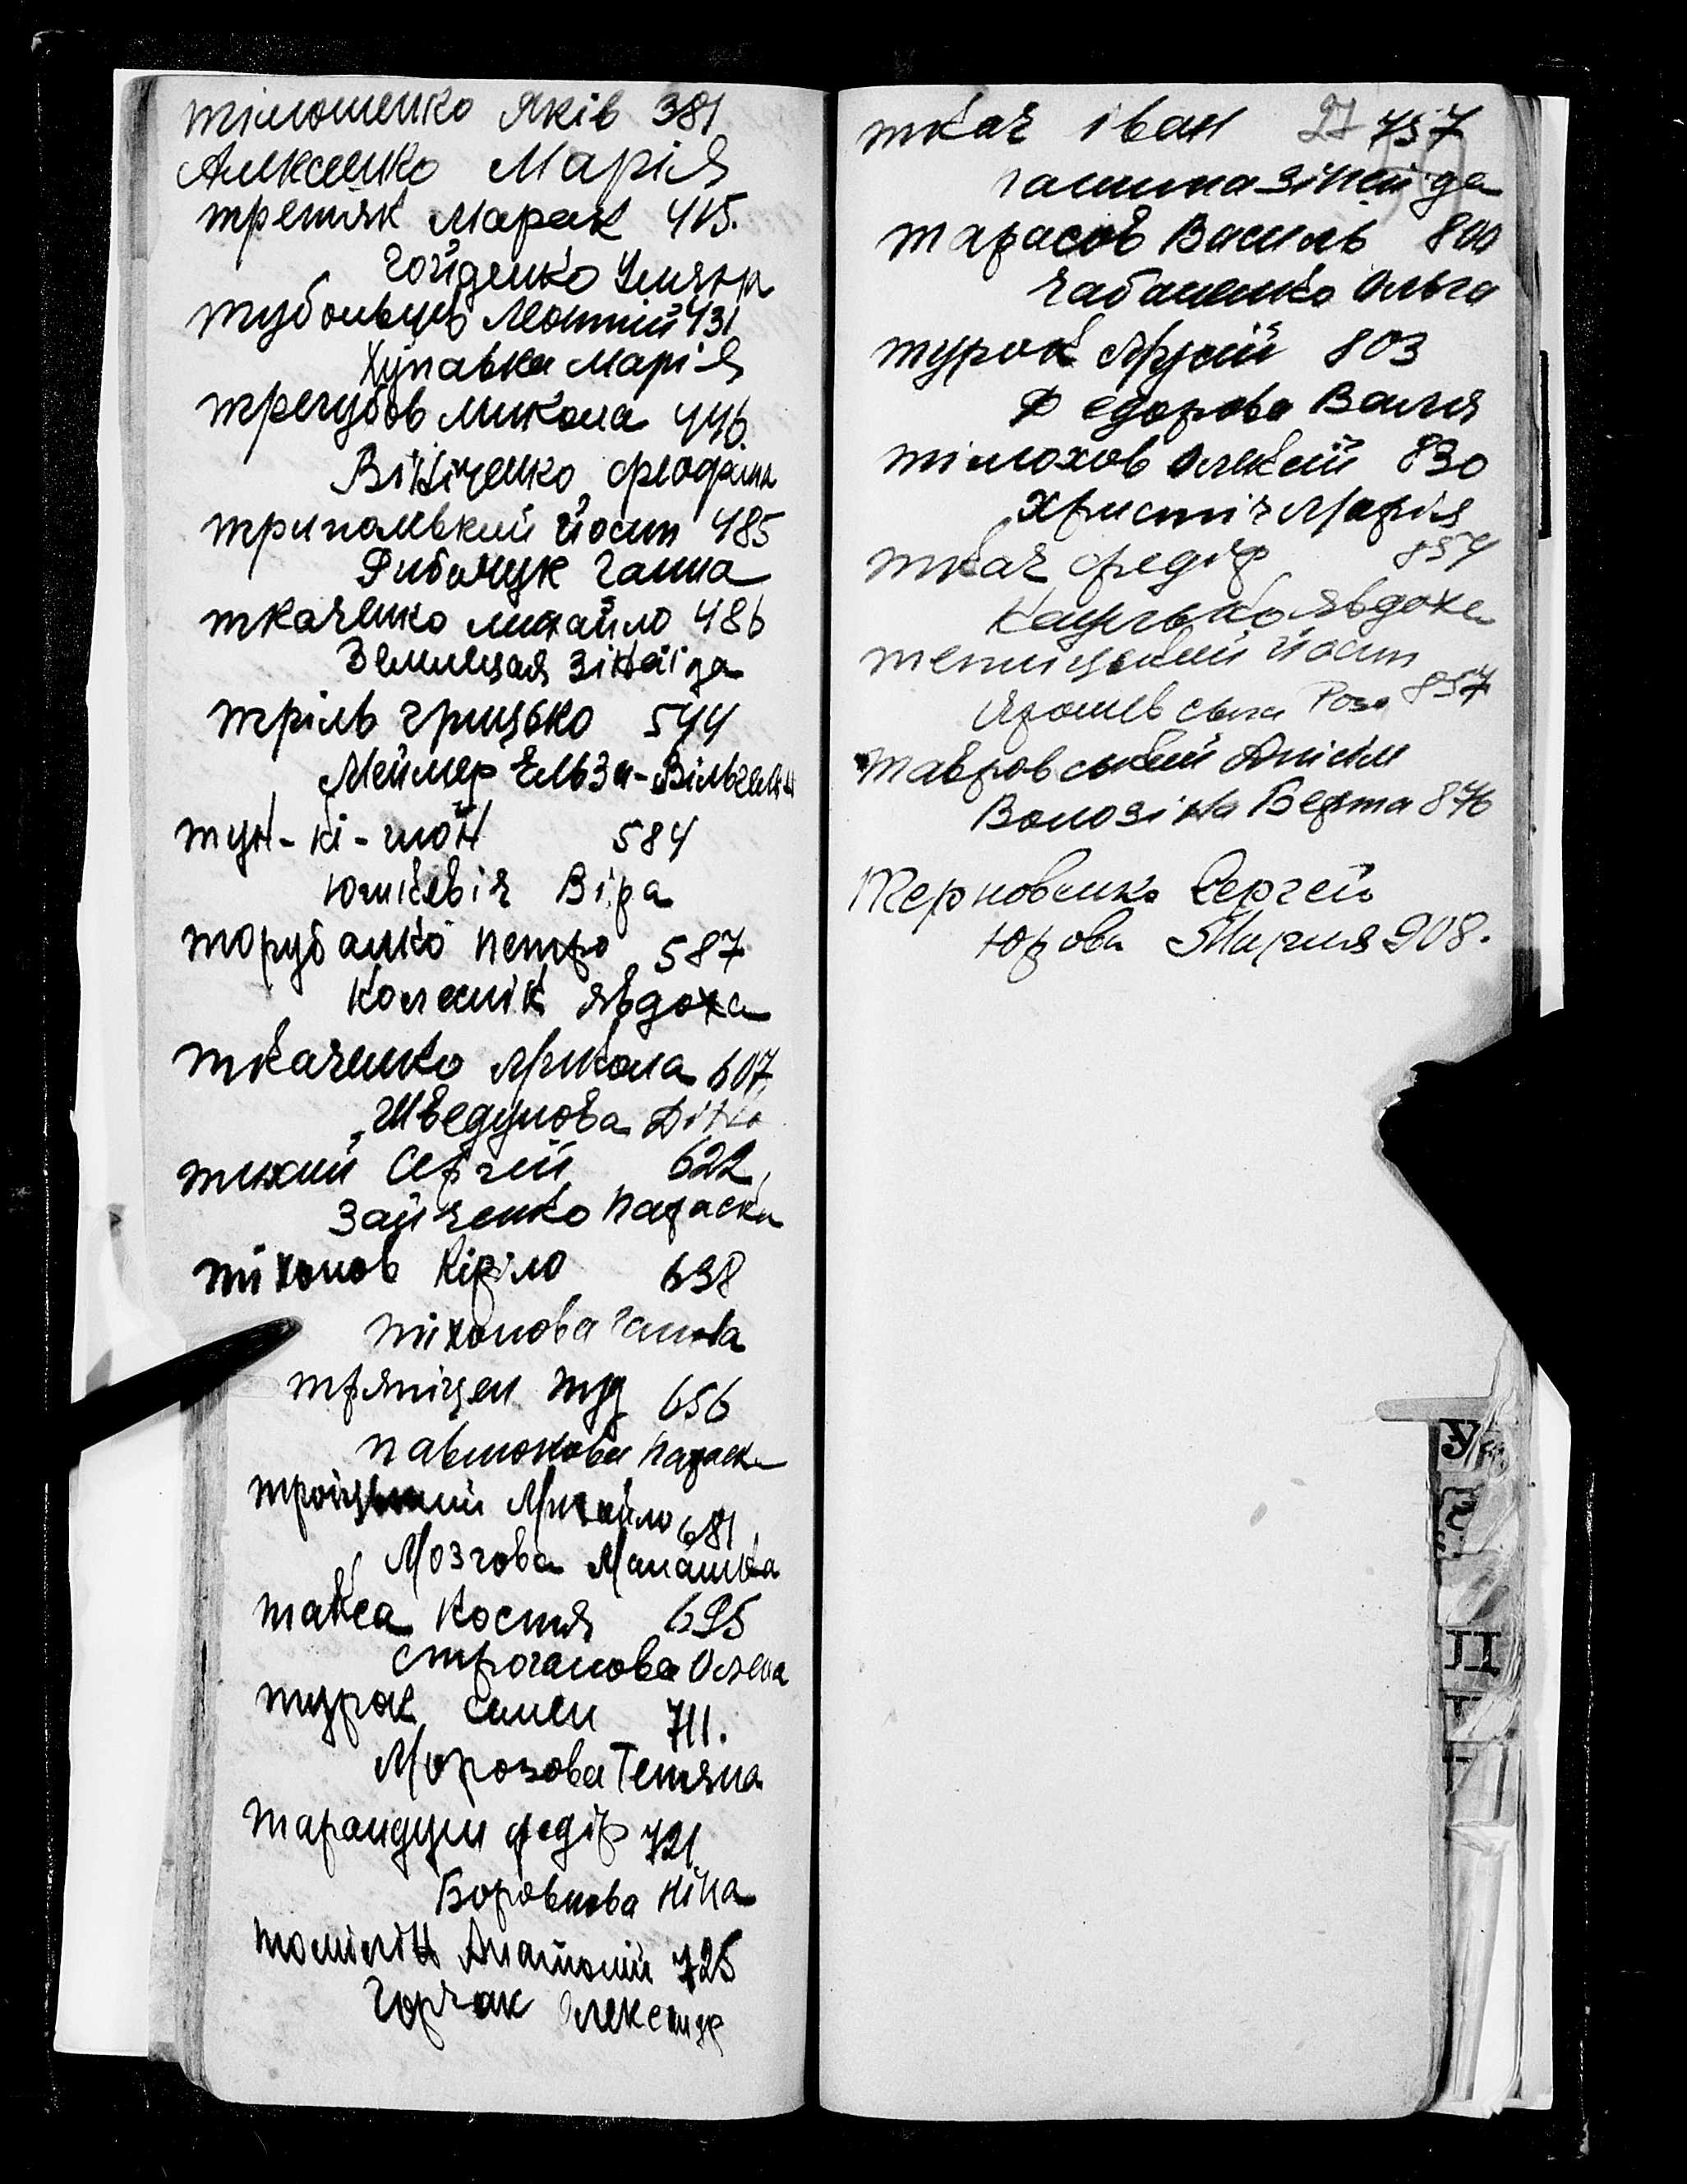 Тімошенко Яків 381
Алексєенко Марія
Третяк Марак 415.
Гойденко Уляна
Тубольцев Леонтій 431
Хупавка Марія
Трегубов Микола 446.
Вінніченко Феодосія
Трипольский Йосип 485
Рибачук Ганна
Ткаченко Михайло 486
Земницая Зінаїда
Тріль Грицько 544
Меймер Ельза-Вільгельм
Тун-кі-шон 584
Юшкевіч Віра
Торубанко Петро 587
Колесник Явдоха
Ткаченко Микола 607
Шведунова Діна
Тихий Сергій 622
Зайченко Параска
Тіхонов Кіріло 638
Тіхонова Ганна
656
Павлюкова Параска
Троіцький Михайло 681
Мозгова Малашка
Такса Костя 695
Строганова Олена
Турок Семен 711.
Морозова Тетяна
Тарандуш Федір 721
Боровкова Ніна
Томілін Анатолій 725
Горчак Олександр
Ткач Іван 27 757
Ганина Зінаїда
Тарасов Василь 800
Чабаненко Ольга
Турок Мусій 803
Федорова Валя
Тімохов Олексій 830
Христіч Марія
Ткач Федір 854
Кацулько Явдоха
Теплицький Йосип
Ярошевська Роза 857
Тавровський Анісім
Волозіна Берта 876
Терновенко Сергей
Юрова Мария 908.